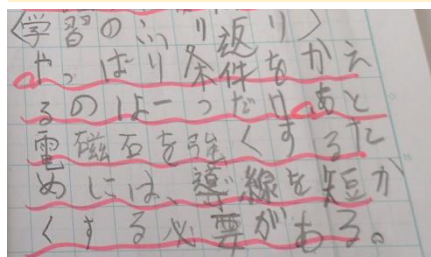 〈学習のふり返り〉
やっぱり条件をかえ
るのは一つだけあと
電磁石を強くするた
めには、導線を短か
くする必要がある。